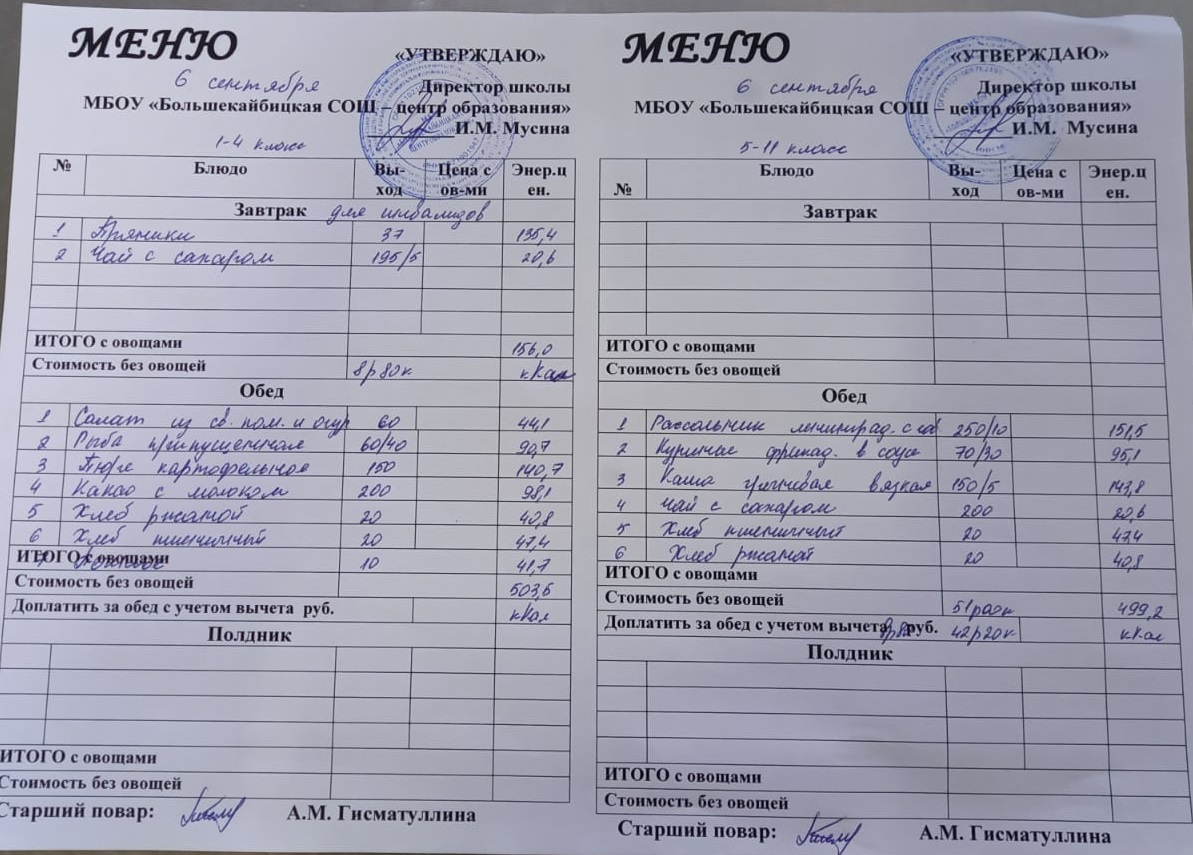 МЕНЮ
6 сентября
«УТВЕРЖДАЮ»
Директор школы
МБОУ «Большекайбицкая СОШ – центр образования»
И.М. Мусина
1-4 класс
№ Блюдо Вы-ход Цена с ов-ми Энер.ц ен.
Завтрак для инвалидов
1 Пряники 37 135,4
2 Чай с сахаром 195/5 20,6
ИТОГО с овощами 156,0
Стоимость без овощей 8р80к кКал
Обед
1 Салат из св. пом. и огур 60 44,1
2 Рыба припущенная 60/40 90,7
3 Пюре картофельное 150 140,7
4 Какао с молоком 200 98,1
5 Хлеб ржаной 20 40,8
6 Хлеб пшеничный 20 47,4
ИТОГО с овощами 10 41,7
Стоимость без овощей 503,6
Доплатить за обед с учетом вычета руб. кКал
Полдник
ИТОГО с овощами
Стоимость без овощей
Старший повар: А.М. Гисматуллина
МЕНЮ
6 сентября
«УТВЕРЖДАЮ»
Директор школы
МБОУ «Большекайбицкая СОШ – центр образования»
И.М. Мусина
5-11 класс
№ Блюдо Вы-ход Цена с ов-ми Энер.ц ен.
Завтрак
ИТОГО с овощами
Стоимость без овощей
Обед
1 Рассольник ленинград. с 250/10 151,5
2 Куриные фрикад. в соусе 70/30 95,1
3 Каша гречневая вязкая 150/5 143,8
4 Чай с сахаром 200 20,6
5 Хлеб пшеничный 20 47,4
6 Хлеб ржаной 20 40,8
ИТОГО с овощами
Стоимость без овощей 499,2
Доплатить за обед с учетом вычета руб. 42р20к кКал
Полдник
ИТОГО с овощами
Стоимость без овощей
Старший повар: А.М. Гисматуллина